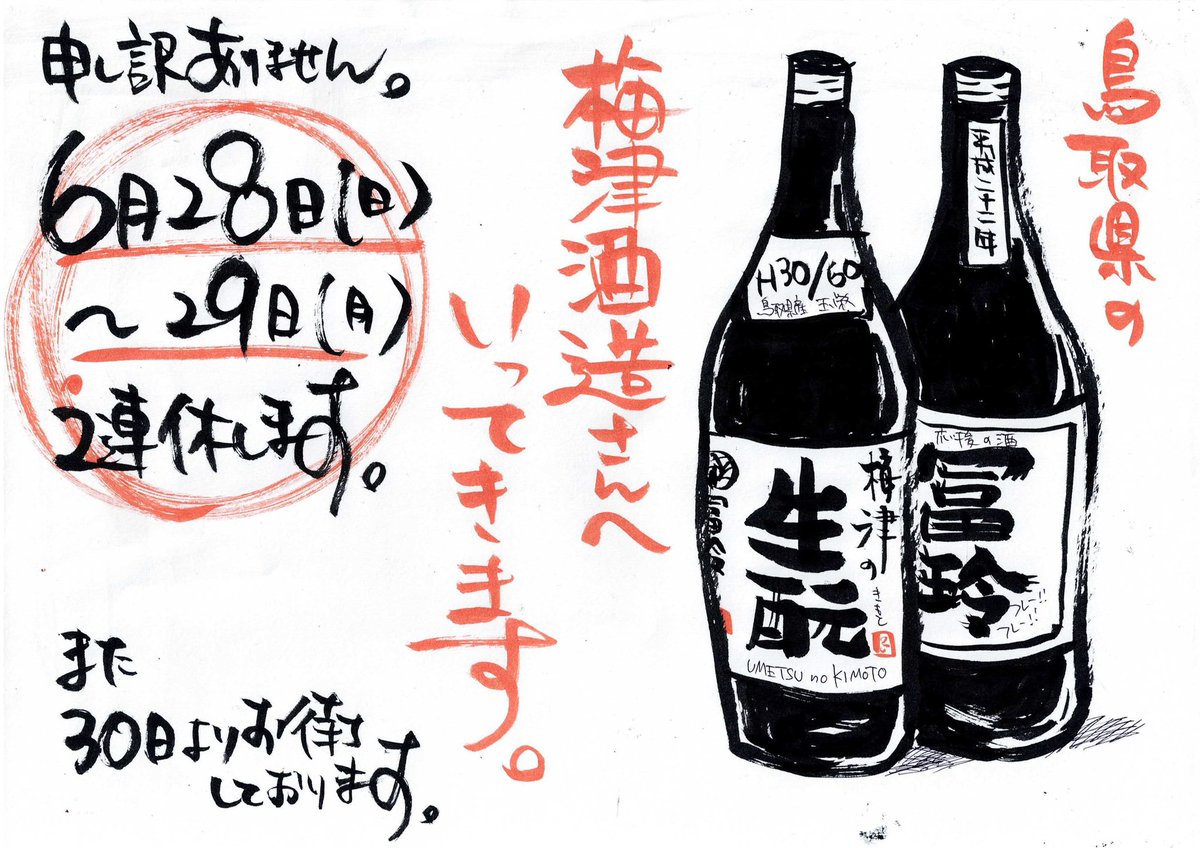 鳥取県の
梅津酒造さんへ
いってきます。
申し訳ありません。
6月28日(日)
〜29日(月)
2連休します。
また
30日よりお待ち
しております。
平成二十二年
H30/60
鳥取県産 玉栄
梅津の
生酛
きもと
UMETSU no KIMOTO
冨玲
フレー!!
フレー!!